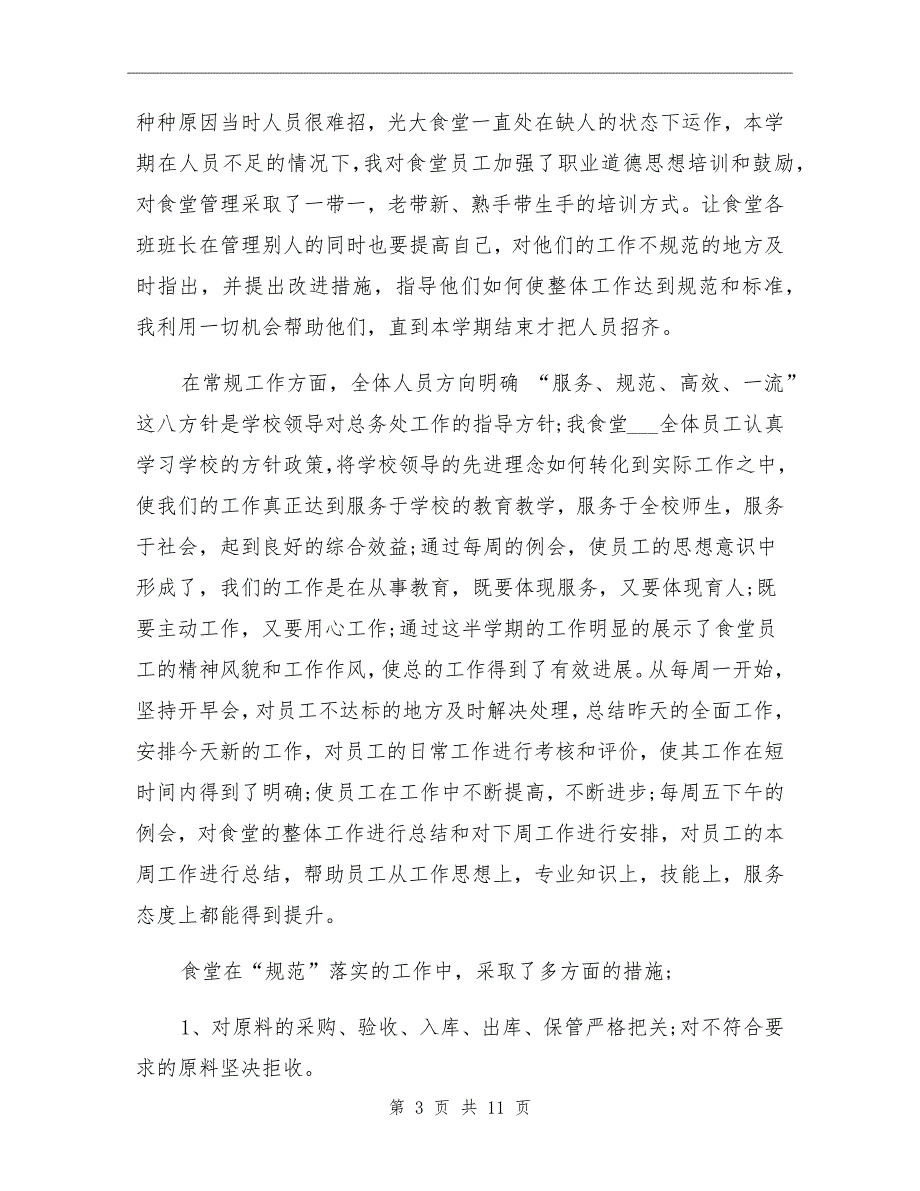 种种原因当时人员很难招，光大食堂一直处在缺人的状态下运作，本学
期在人员不足的情况下，我对食堂员工加强了职业道德思想培训和鼓励，
对食堂管理采取了一带一，老带新、熟手带生手的培训方式。让食堂各
班班长在管理别人的同时也要提高自己，对他们的工作不规范的地方及
时指出，并提出改进措施，指导他们如何使整体工作达到规范和标准，
我利用一切机会帮助他们，直到本学期结束才把人员招齐。
在常规工作方面，全体人员方向明确 “服务、规范、高效、一流”
这八方针是学校领导对总务处工作的指导方针;我食堂___全体员工认真
学习学校的方针政策，将学校领导的先进理念如何转化到实际工作之中，
使我们的工作真正达到服务于学校的教育教学，服务于全校师生，服务
于社会，起到良好的综合效益;通过每周的例会，使员工的思想意识中
形成了，我们的工作是在从事教育，既要体现服务，又要体现育人;既
要主动工作，又要用心工作;通过这半学期的工作明显的展示了食堂员
工的精神风貌和工作作风，使总的工作得到了有效进展。从每周一开始，
坚持开早会，对员工不达标的地方及时解决处理，总结昨天的全面工作，
安排今天新的工作，对员工的日常工作进行考核和评价，使其工作在短
时间内得到了明确;使员工在工作中不断提高，不断进步;每周五下午的
例会，对食堂的整体工作进行总结和对下周工作进行安排，对员工的本
周工作进行总结，帮助员工从工作思想上，专业知识上，技能上，服务
态度上都能得到提升。
食堂在“规范”落实的工作中，采取了多方面的措施;
1、对原料的采购、验收、入库、出库、保管严格把关;对不符合要
求的原料坚决拒收。
第 3 页 共 11 页